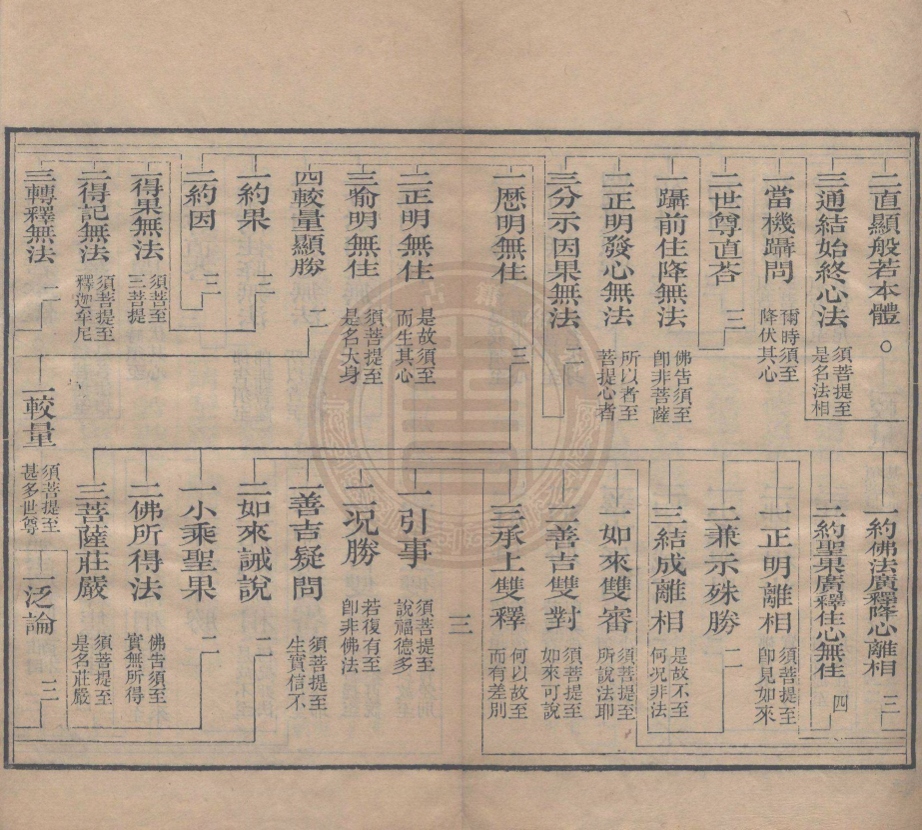 二直顯般若本體 〇
三通結始終心法 須菩提至是名法相
一當機躡問 爾時須至降伏其心
二世尊直荅 三
一躡前住降無法 佛告須至卽非菩薩
二正明發心無法 所以者至菩提心者
三分示因果無法 二
一歷明無住 三
二正明無住 是故須至而生其心
三喻明無住 須菩提至是名大身
四較量顯勝 二
一約果 三
二約因 三
一得果無法 須菩提至三菩提
二得記無法 須菩提至釋迦牟尼
三轉釋無法 二
一約佛法廣釋降心離相 三
二約聖果廣釋住心無住 四
一正明離相 須菩提至卽見如來
二兼示殊勝 二
三結成離相 是故不至何況非法
一如來雙審 須菩提至所說法耶
二善吉雙對 須菩提至如來可說
三承上雙釋 何以故至而有差別
三
一引事 須菩提至說福德多
二況勝 若復有至卽非佛法
一善吉疑問 須菩提至生實信不
二如來誡說 二
一小乘聖果 二
二佛所得法 佛告須至實無所得
三菩薩莊嚴 須菩提至是名莊嚴
一較量 須菩提至甚多世尊
一泛論 三